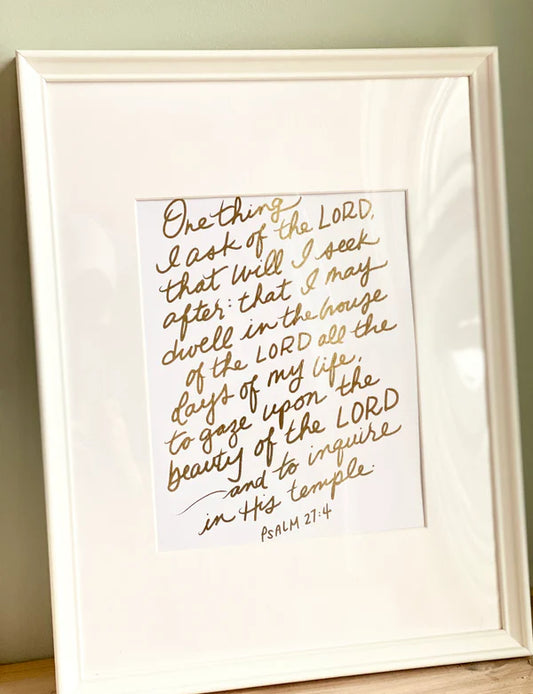 One thing
I ask of the LORD,
that will I seek
after: that I may
dwell in the house
of the LORD all the
days of my life,
to gaze upon the
beauty of the LORD
and to inquire
in His temple.
PSALM 27:4